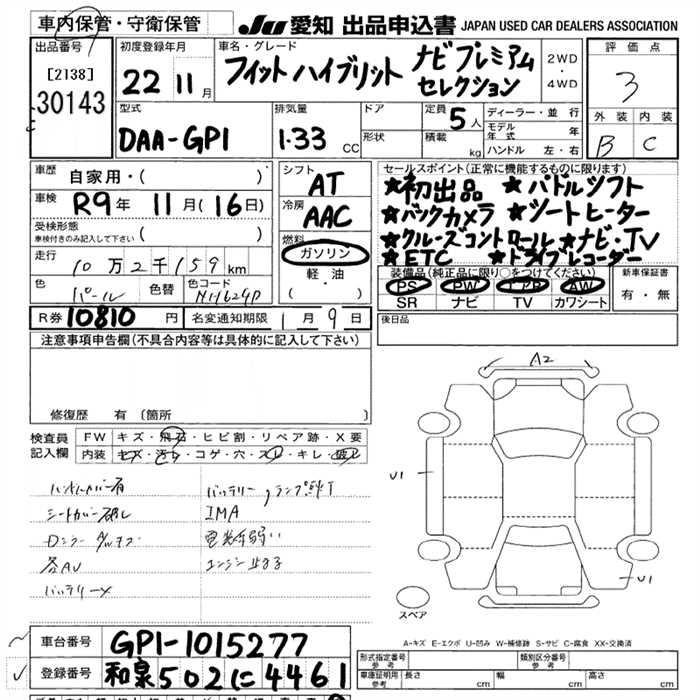 車内保管・守衛保管
JU 愛知 出品申込書 JAPAN USED CAR DEALERS ASSOCIATION
出品番号
[2138]
30143
初度登録年月
22 11 月
車名・グレード
フィット ハイブリット ナビプレミアム
セレクション
2WD
・
4WD
評価点
3
外装 内装
B C
型式
DAA-GP1
排気量
1.33 CC
ドア
形状
定員 5 人
積載 kg
ディーラー・並行
モデル年式 年
ハンドル 左・右
車歴
自家用・( )
車検
R9年 11月(16日)
受検形態
車検付きのみ記入して下さい ( )
走行
10万2千159km
色
パール
色替
色コード
NH624P
シフト
AT
冷房
AAC
燃料
ガソリン
軽油
( ・ )
セールスポイント(正常に機能するものに限ります)
★初出品 ★パドルシフト
★バックカメラ ★シートヒーター
★クルーズコントロール ★ナビ・TV
★ETC ★ドライブレコーダー
装備品(純正品に限り○をつけてください)
PS PW エアB AW
SR ナビ TV カワシート
新車保証書
有・無
R券 10810 円
名変通知期限 1月 9日
後日品
注意事項申告欄(不具合内容等は具体的に記入して下さい)
修復歴 有 (箇所
検査員
記入欄
FW キズ・飛石・ヒビ割・リペア跡・X要
内装 キズ・汚れ・コゲ・穴・スレ・キレ・破レ
ハンドルカバー有
シートカバー破レ
各AV
バッテリーX
バッテリー、ランプ点灯
IMA
電池弱い
エンジン止まる
A2
U1
U1
スペア
A-キズ E-エクボ U-凹み W-補修跡 S-サビ C-腐食 XX-交換済
車台番号 GP1-1015277
登録番号 和泉502に4461
形式指定番号
参考
類別区分番号
参考
車庫証明用
参考
長さ cm 幅 cm 高さ cm